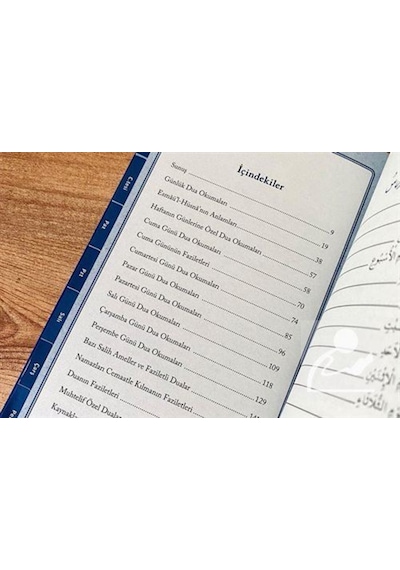 İçindekiler
Sunuş 9
Günlük Dua Okumaları 19
Esmâü'l-Hüsnâ'nın Anlamları 38
Haftanın Günlerine Özel Dua Okumaları 57
Cuma Günü Dua Okumaları 58
Cuma Gününün Faziletleri 70
Cumartesi Günü Dua Okumaları 74
Pazar Günü Dua Okumaları 85
Pazartesi Günü Dua Okumaları 96
Salı Günü Dua Okumaları 109
Çarşamba Günü Dua Okumaları 118
Perşembe Günü Dua Okumaları 129
Bazı Salih Ameller ve Faziletli Dualar
Namazları Cemaatle Kılmanın Faziletleri
Duanın Faziletleri
Muhtelif Özel Dualar
Cmt
Paz
Pzt
Salı
Çarş